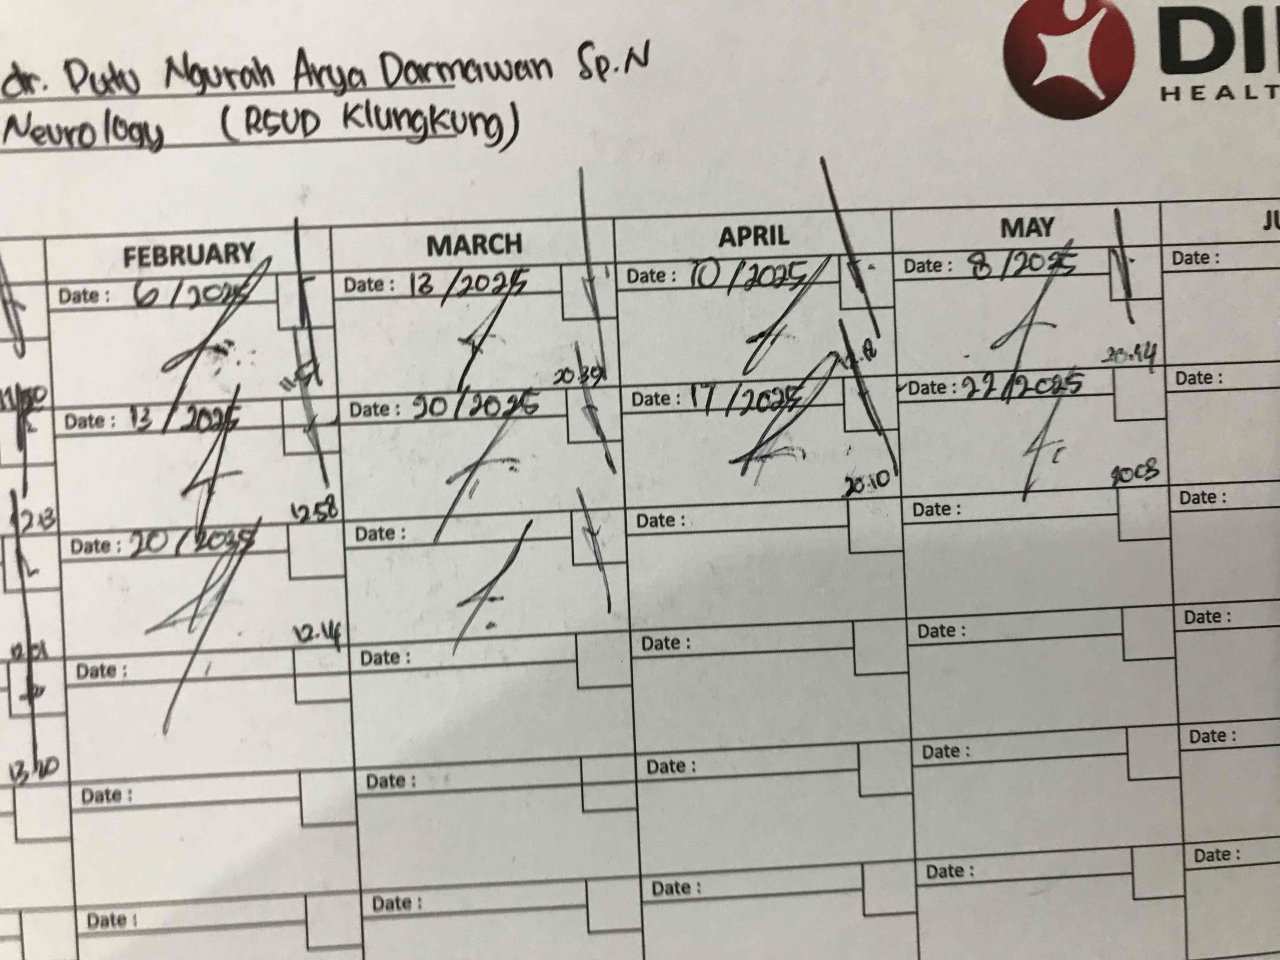 dr. Putu Ngurah Arya Darmawan Sp.N
Neurology (RSUD Klungkung)
DI
HEALT
FEBRUARY MARCH APRIL MAY JU
Date : 6/2025 Date : 13/2025 Date : 10/2025 Date : 8/2025 Date :
20.39 20.44
Date : 13/2025 Date : 20/2025 Date : 17/2025 Date : 22/2025 Date :
1213 1258 20.10
Date : 20/2025 Date : Date : Date : Date :
12.14
Date : Date : Date : Date : Date :
13 20
Date : Date : Date : Date : Date :
Date : Date : Date : Date : Date :